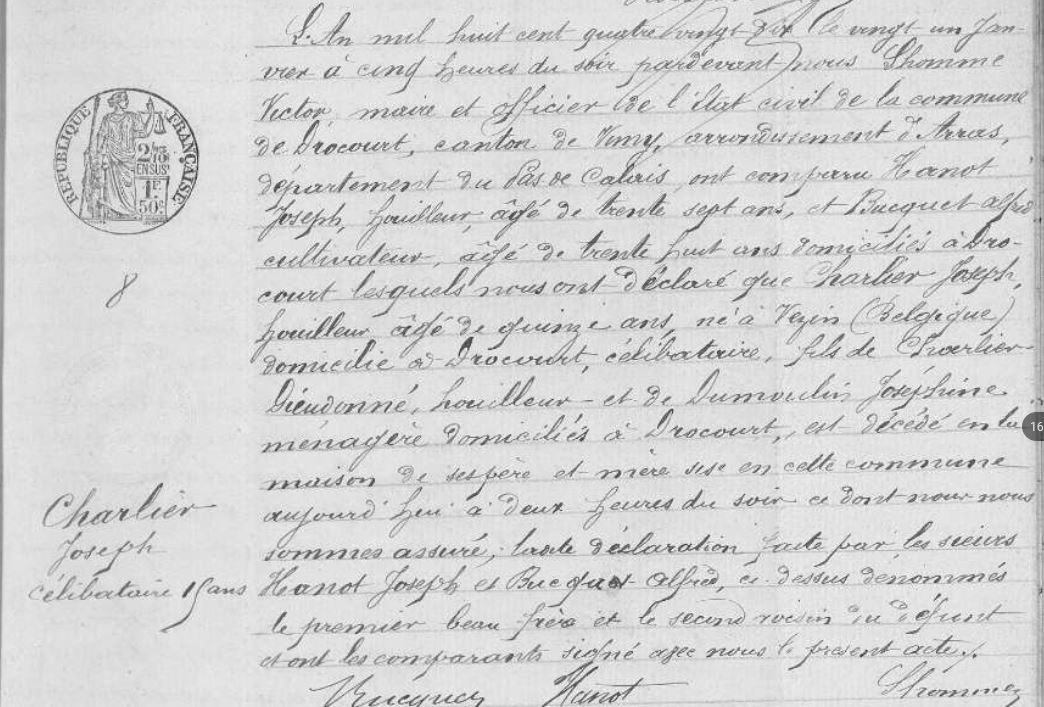 L'An mil huit cent quatre vingt dix le vingt un Jan-
vier à cinq heures du soir pardevant nous Lhomme
Victor, maire et officier de l'état civil de la commune
de Drocourt, canton de Vimy, arrondissement d'Arras,
département du Pas de Calais, ont comparu Hanot
Joseph, houilleur, âgé de trente sept ans, et Bucquet alfred
cultivateur, âgé de trente huit ans domiciliés à Dro-
court lesquels nous ont déclaré que Charlier Joseph,
houilleur âgé de quinze ans, né à Vezin (Belgique)
domicilié à Drocourt, célibataire, fils de Charlier
Dieudonné, houilleur et de Dumoulin Joséphine
ménagère domiciliés à Drocourt, est décédé en la
maison de ses père et mère sise en cette commune
aujourd'hui à deux heures du soir ce dont nous nous
sommes assuré, la dite déclaration faite par les sieurs
Hanot Joseph et Bucquet alfred, ci-dessus dénommés
le premier beau frère et le second voisin du défunt
et ont les comparants signé avec nous le présent acte.
Bucquet Hanot Lhomme
RÉPUBLIQUE FRANÇAISE
2/10
EN SUS
1F
50c
8
Charlier
Joseph
célibataire 15 ans
16